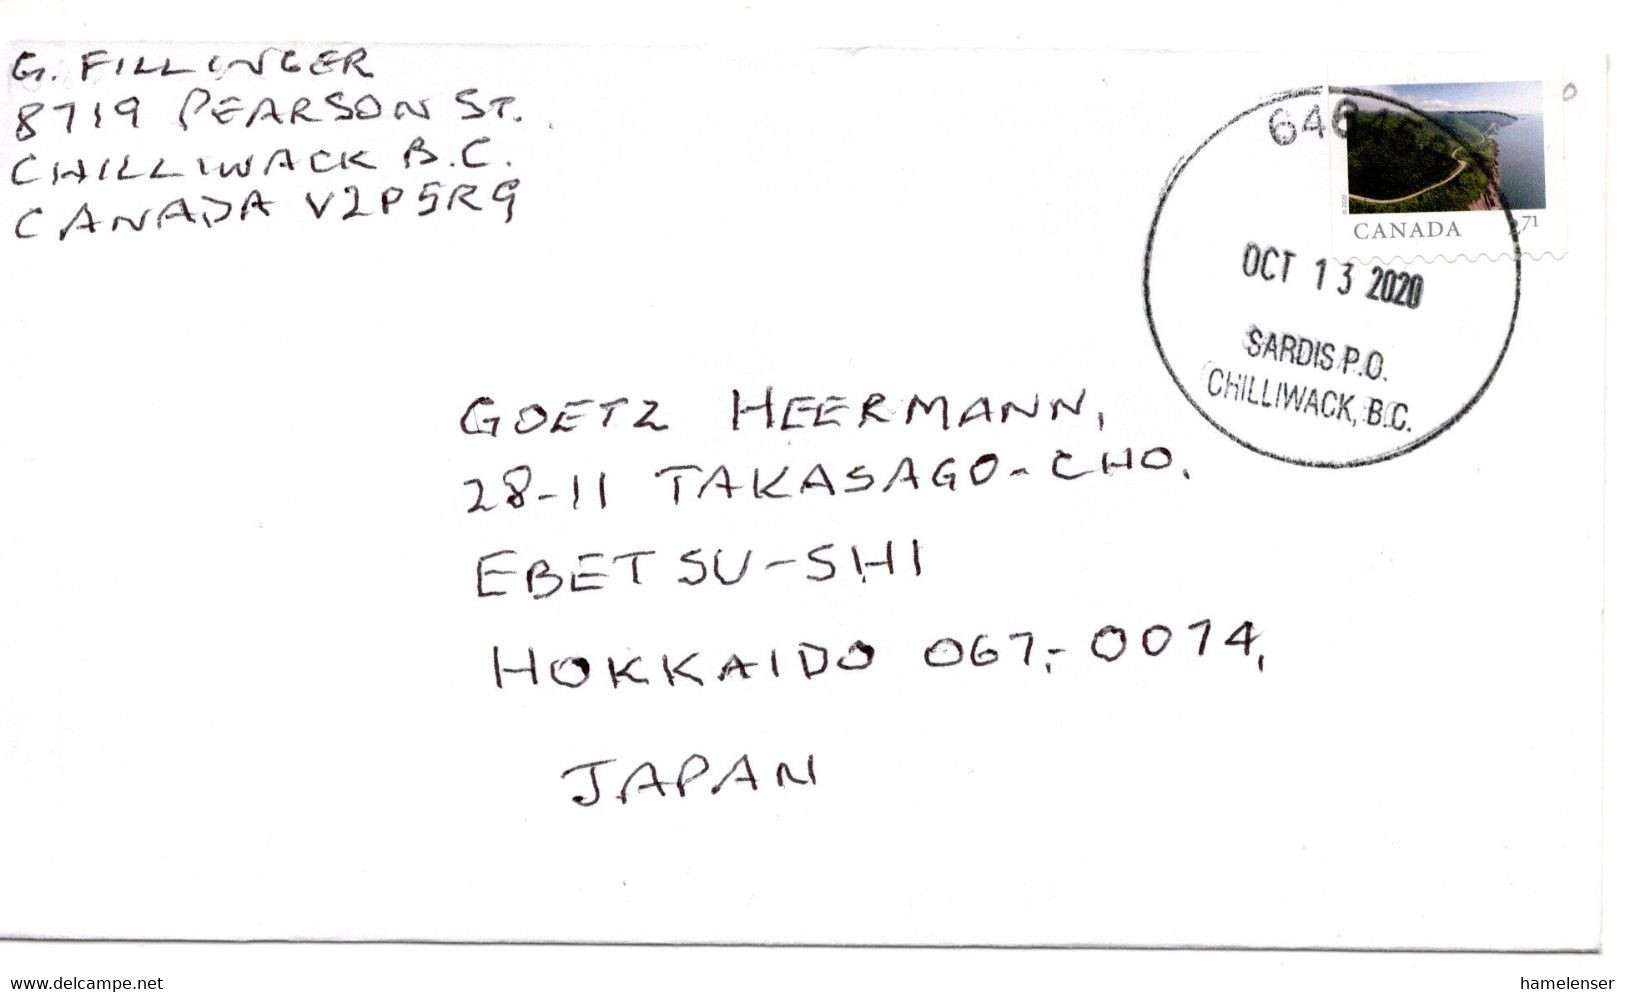 G. FILLINGER
8719 PEARSON ST.
CHILLIWACK B.C.
CANADA V2P5R9
CANADA 2⁷¹
© 2020
OCT 13 2020
SARDIS P.O.
CHILLIWACK, B.C.
GOETZ HEERMANN,
28-11 TAKASAGO-CHO.
EBETSU-SHI
HOKKAIDO 067,-0074,
JAPAN
www.delcampe.net
hamelenser